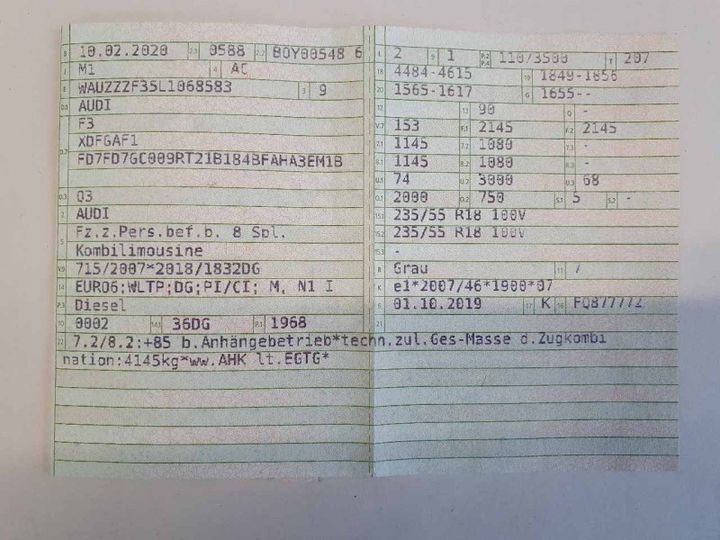 B 10.02.2020 2.1 0588 2.2 BOY00548 6
J M1 4 AC
E WAUZZZF35L1068583 3 9
D.1 AUDI
F3
D.2 XDFGAF1
FD7FD7GC009RT21B184BFAHA3EM1B
D.3 Q3
2 AUDI
5 Fz.z.Pers.bef.b. 8 Spl.
Kombilimousine
V.9 715/2007*2018/1832DG
14 EURO6;WLTP;DG;PI/CI; M, N1 I
P.3 Diesel
10 0002 14.1 36DG P.1 1968
22 7.2/8.2:+85 b.Anhängebetrieb*techn.zul.Ges-Masse d.Zugkombi
nation:4145kg*ww.AHK lt.EGTG*
L 2 9 1 P.2 P.4 110/3500 T 207
18 4484-4615 19 1849-1856
20 1565-1617 G 1655--
12 - 13 90 Q -
V.7 153 F.1 2145 F.2 2145
7.1 1145 7.2 1080 7.3 -
8.1 1145 8.2 1080 8.3 -
U.1 74 U.2 3000 U.3 68
O.1 2000 O.2 750 S.1 5 S.2 -
15.1 235/55 R18 100V
15.2 235/55 R18 100V
15.3 -
R Grau 11 7
K e1*2007/46*1900*07
6 01.10.2019 17 K 16
21